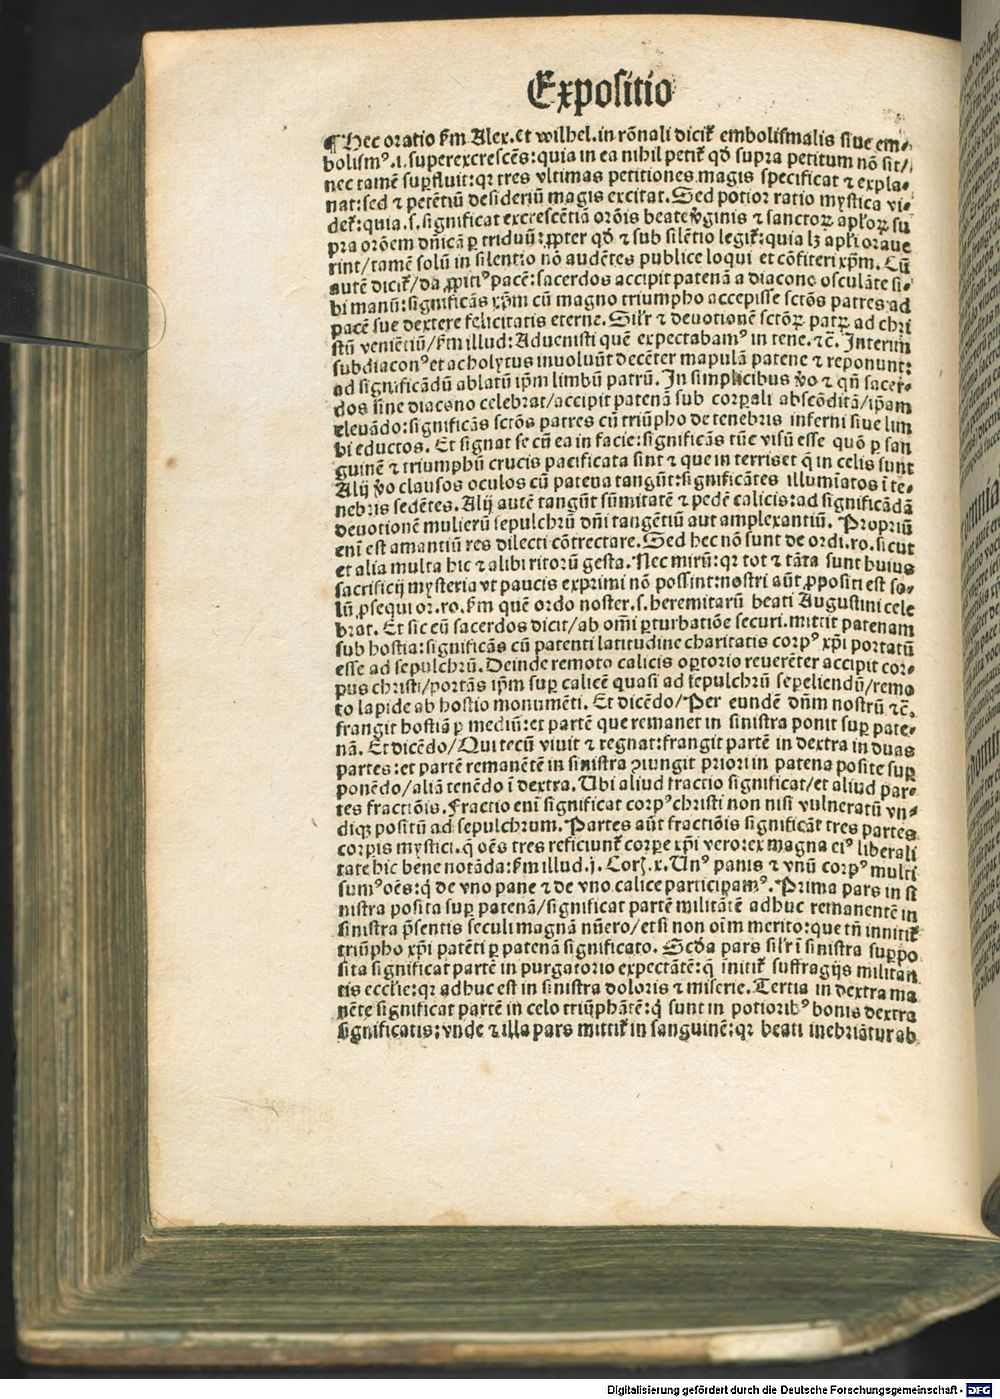 Expositio
¶Hec oratio ẜm Alex. et wilhel. in rõnali dicit᷑ embolismalis siue em⸗
bolismꝰ .i. superexcrescẽs: quia in ea nihil petit᷑ qđ supra petitum nõ sit/
nec tamẽ suꝑfluit: qꝛ tres vltimas petitiones magis specificat ⁊ expla⸗
nat: sed ⁊ petẽtiũ desideriũ magis excitat. Sed potior ratio mystica vi⸗
det᷑: quia .s. significat excrescẽtiã orõis beate v̾ginis ⁊ sanctoꝝ aplõꝝ su
pra orõem dñicã ꝑ triduũ: ꝓpter qđ ⁊ sub silẽtio legit᷑: quia lꝫ apli oraue
rint/ tamẽ solũ in silentio nõ audẽtes publice loqui et cõfiteri xp̃m. Cũ
autẽ dicit᷑/ da ꝓpitiꝰ pacẽ: sacerdos accipit patenã a diacono osculãte si⸗
bi manũ: significãs xp̃m cũ magno triumpho accepisse sctõs patres ad
pacẽ sue dextere felicitatis eterne. Silr̃ ⁊ deuotionẽ sctõꝝ patꝝ ad chri
stũ veniẽtiũ/ ẜm illud: Aduenisti quẽ expectabamꝰ in tene. ⁊c̃. Interim
subdiaconꝰ et acholytus inuoluũt decẽter mapulã patene ⁊ reponunt:
ad significãdũ ablatũ ip̃m limbũ patrũ. In simplicibus v̾o ⁊ qñ sacer⸗
dos sine diacono celebrat/ accipit patenã sub corꝑali abscõditã/ ip̃am
eleuãdo: significãs sctõs patres cũ triũpho de tenebris inferni siue lim
bi eductos. Et signat se cũ ea in facie: significãs tũc visũ esse quõ ꝑ san
guinẽ ⁊ triumphũ crucis pacificata sint ⁊ que in terris et q̃ in celis sunt
Alij v̾o clausos oculos cũ patena tangũt: significãtes illumĩatos ĩ te⸗
nebris sedẽtes. Alij autẽ tangũt sũmitatẽ ⁊ pedẽ calicis: ad significãdã
deuotionẽ mulierũ sepulchrũ dñi tangẽtiũ aut amplexantiũ. Propriũ
enĩ est amantiũ res dilecti cõtrectare. Sed hec nõ sunt de ordi. ro. sicut
et alia multa hic ⁊ alibi ritorũ gesta. Nec mirũ: qꝛ tot ⁊ tãta sunt huius
sacrificij mysteria vt paucis exprimi nõ possint: nostri aũt ꝓpositi est so⸗
lũ ꝓsequi or. ro. ẜm quẽ ordo noster .s. heremitarũ beati Augustini cele
brat. Et sic cũ sacerdos dicit/ ab om̃i ꝑturbatiõe securi. mittit patenam
sub hostia: significãs cũ patenti latitudine charitatis corpꝰ xp̃i portatũ
esse ad sepulchrũ. Deinde remoto calicis oꝑtorio reuerẽter accipit cor⸗
pus christi/ portãs ip̃m suꝑ calicẽ quasi ad sepulchrũ seꝑeliendũ/ remo
to lapide ab hostio monumẽti. Et dicẽdo/ Per eundẽ dñm nostrũ ⁊c̃.
frangit hostiã ꝑ mediũ: et partẽ que remanet in sinistra ponit suꝑ pate⸗
nã. Et dicẽdo/ Qui tecũ viuit ⁊ regnat: frangit partẽ in dextra in duas
partes: et partẽ remanẽtẽ in sinistra ꝯiungit priori in patena posite suꝑ
ponẽdo/ aliã tenẽdo ĩ dextra. Ubi aliud fractio significat/ et aliud par⸗
tes fractiõis. Fractio enĩ significat corpꝰ christi non nisi vulneratũ vn⸗
diqꝫ positũ ad sepulchrum. Partes aũt fractiõis significãt tres partes
corpis mystici. q̃ oẽs tres reficiunt᷑ corꝑe xp̃i vero: ex magna eiꝰ liberali
tate hic bene notãda: ẜm illud .j. Corꝫ. x. Unꝰ panis ⁊ vnũ corpꝰ multi
sumꝰ oẽs: q̃ de vno pane ⁊ de vno calice participamꝰ. Prima pars in si
nistra posita suꝑ patenã/ significat partẽ militãtẽ adhuc remanentẽ in
sinistra p̃sentis seculi magnã nũero/ et si non oĩm merito: que tñ innitit᷑
triũpho xp̃i patẽti ꝑ patenã significato. Scđa pars silr̃ ĩ sinistra suꝑpo
sita significat partẽ in purgatorio expectãtẽ: q̃ initit᷑ suffragijs militan
tis ecclie: qꝛ adhuc est in sinistra doloris ⁊ miserie. Tertia in dextra ma
nẽte significat partẽ in celo triũphãtẽ: q̃ sunt in potioribꝰ bonis dextra
significatis: vnde ⁊ illa pars mittit᷑ in sanguinẽ: qꝛ beati inebriãtur ab
Digitalisierung gefördert durch die Deutsche Forschungsgemeinschaft - DFG